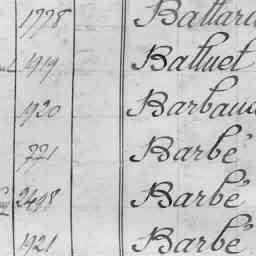 1778 Ballard
1919 Balluet
1920 Barbaud
771 Barbé
2498 Barbé
1921 Barbé